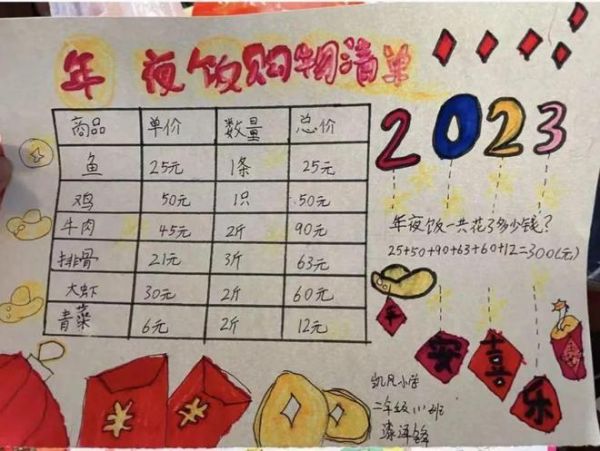 年夜饭购物清单
2023
商品 单价 数量 总价
鱼 25元 1条 25元
鸡 50元 1只 50元
牛肉 45元 2斤 90元
排骨 21元 3斤 63元
大虾 30元 2斤 60元
青菜 6元 2斤 12元
年夜饭一共花了多少钱?
25+50+90+63+60+12=300(元)
平安喜乐
凯凡小学
二年级(1)班